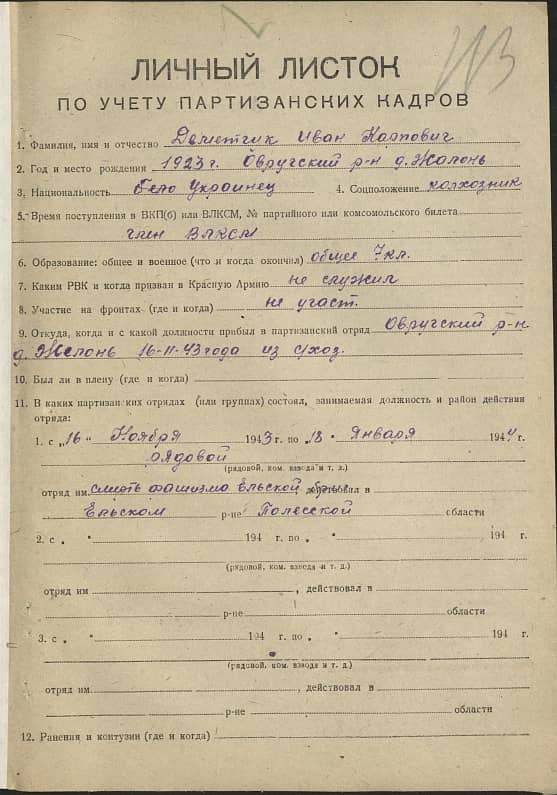 ЛИЧНЫЙ ЛИСТОК
ПО УЧЕТУ ПАРТИЗАНСКИХ КАДРОВ
1. Фамилия, имя и отчество Деметчик Иван Карпович
2. Год и место рождения 1923 г. Овручский р-н д. Жолонь
3. Национальность Украинец 4. Соцположение колхозник
5. Время поступления в ВКП(б) или ВЛКСМ, № партийного или комсомольского билета
член ВЛКСМ
6. Образование: общее и военное (что и когда окончил) общее 7 кл.
7. Каким РВК и когда призван в Красную Армию не служил
8. Участие на фронтах (где и когда) не участ.
9. Откуда, когда и с какой должности прибыл в партизанский отряд Овручский р-н
д. Жолонь 16-11-43 года из с/хоз.
10. Был ли в плену (где и когда)
11. В каких партизанских отрядах (или группах) состоял, занимаемая должность и район действия
отряда:
1. с „16" Ноября 1943 г. по „18" Января 1944 г.
рядовой
(рядовой, ком. взвода и т. д.)
отряд им. смерть фашизма Ельской действовал в
Ельском р-не Полесской области
2. с „ " 194 г. по „ " 194 г.
(рядовой, ком. взвода и т. д.)
отряд им , действовал в
р-не области
3. с „ " 194 г. по „ " 194 г.
(рядовой, ком. взвода и т. д.)
отряд им. , действовал в
р-не области
12. Ранения и контузии (где и когда)